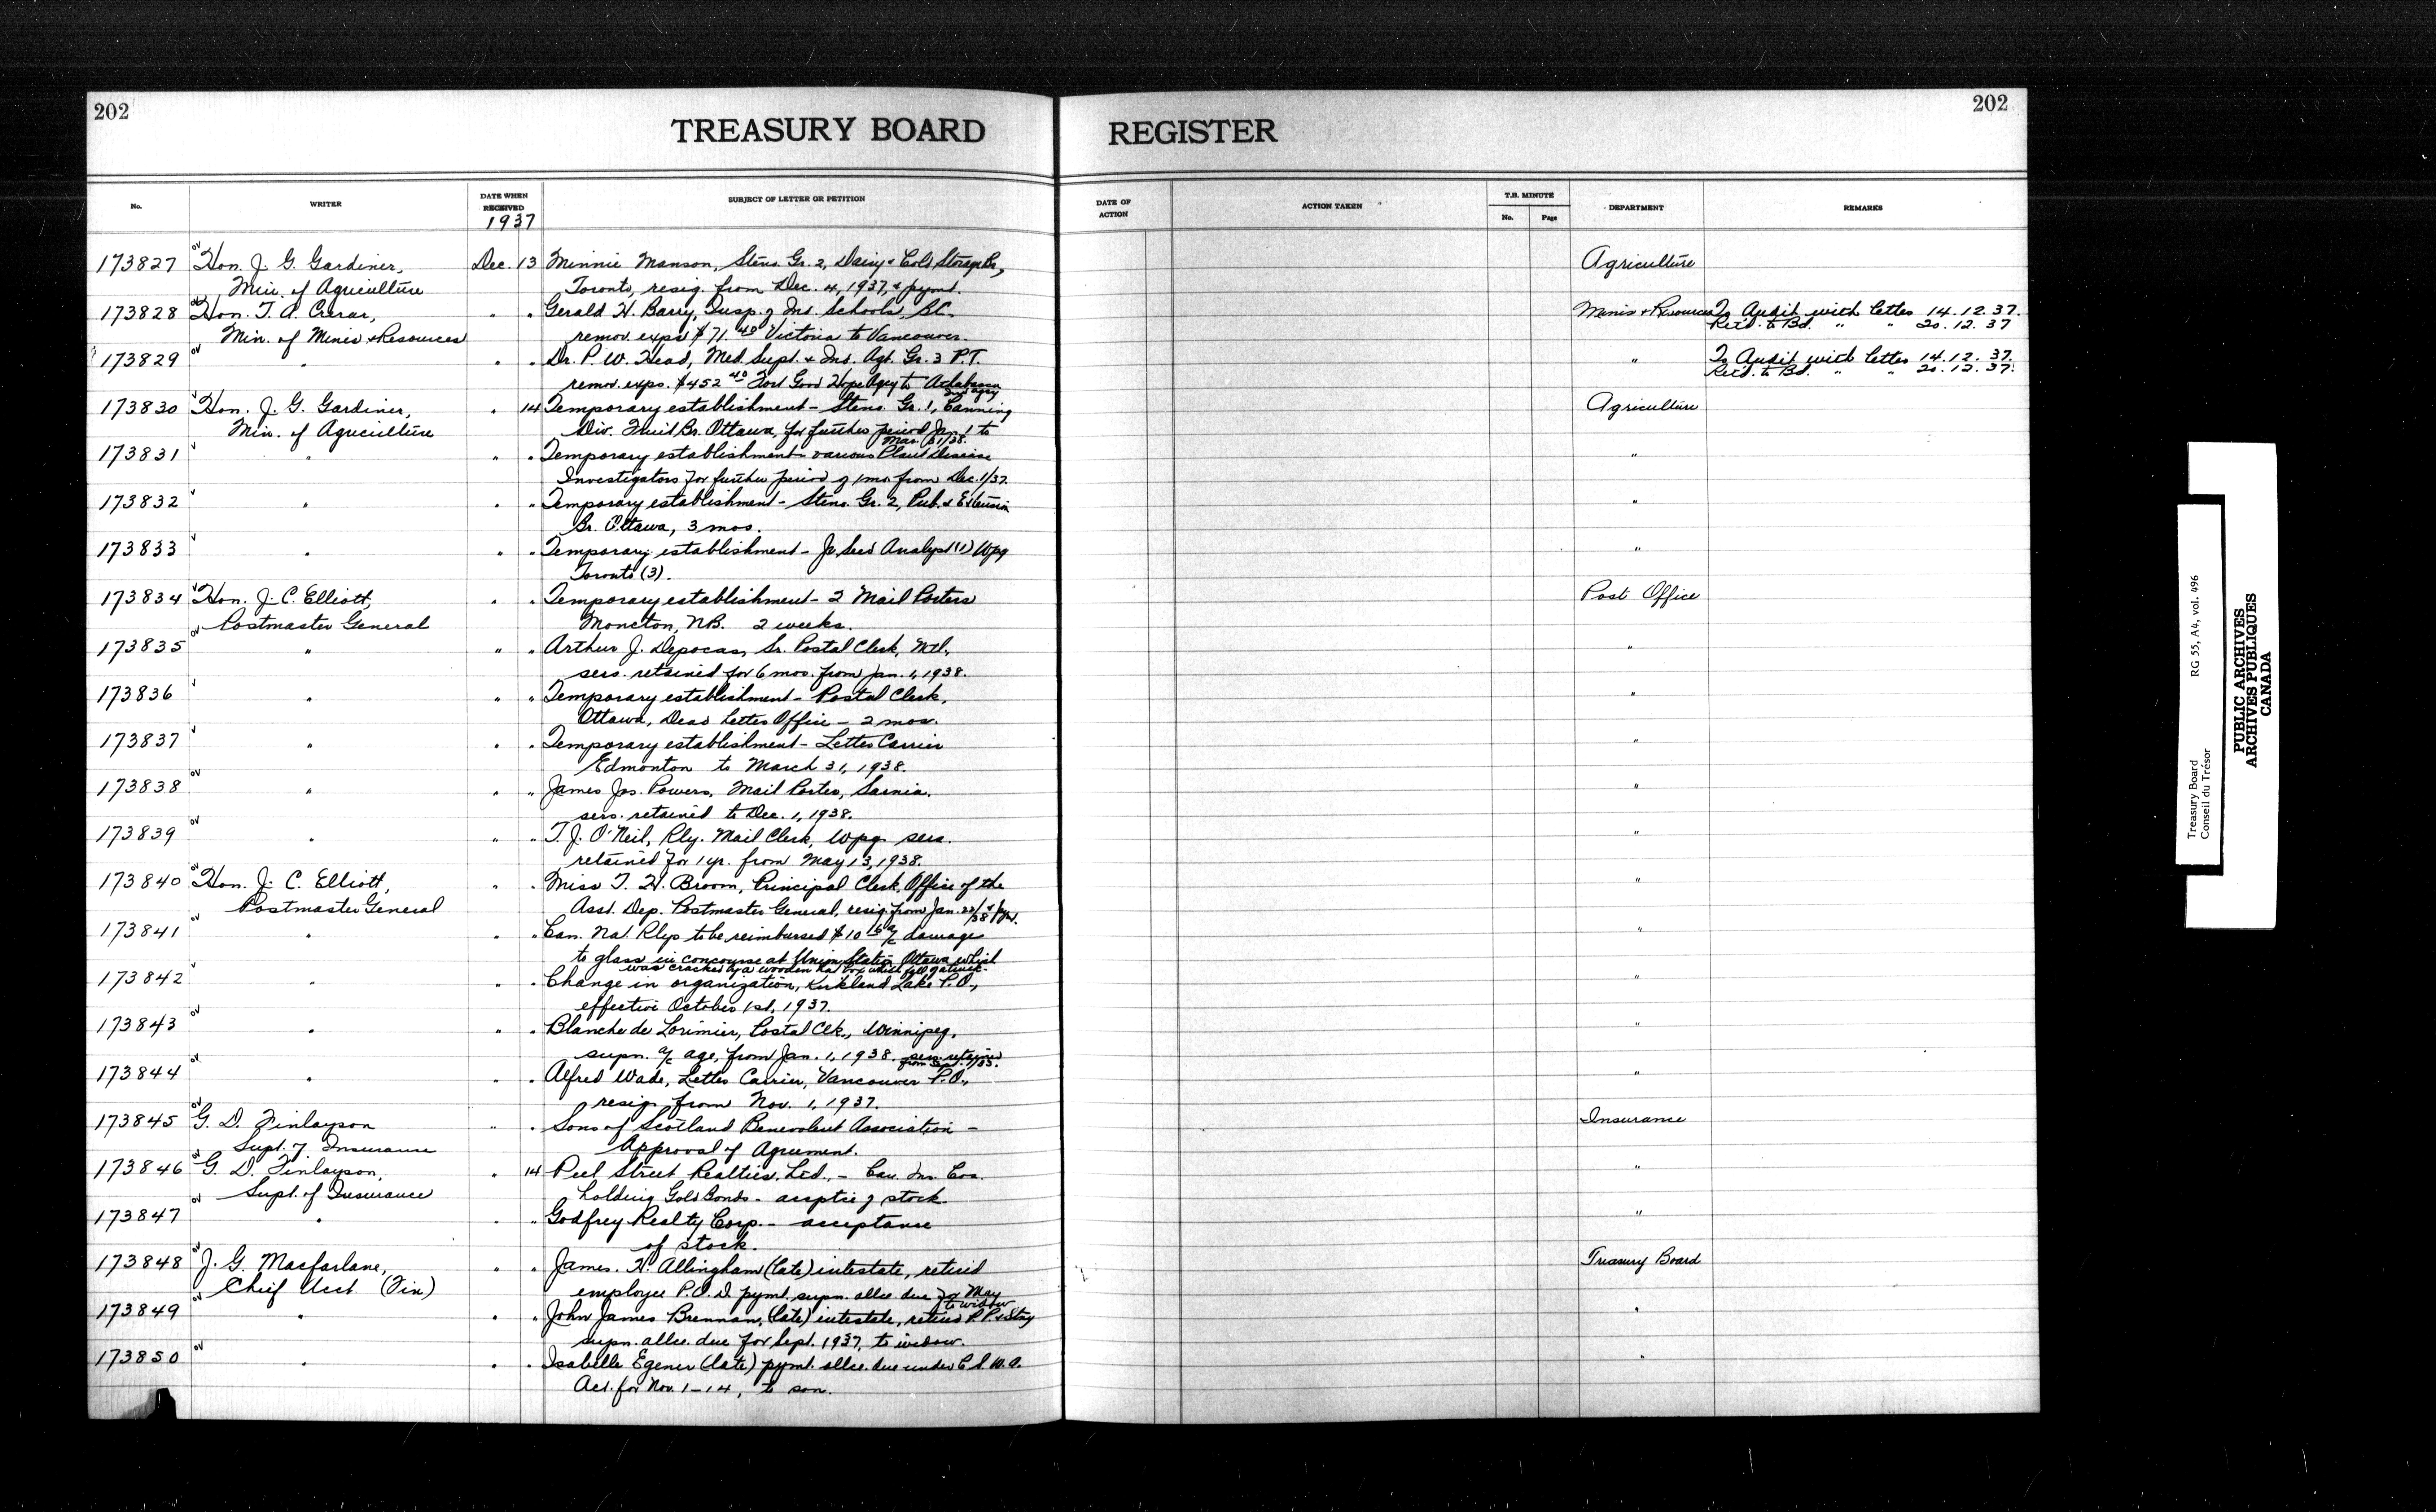 202
202
TREASURY BOARD REGISTER
No. WRITER DATE WHEN RECEIVED SUBJECT OF LETTER OR PETITION DATE OF ACTION ACTION TAKEN T.B. MINUTE No. Page DEPARTMENT REMARKS
1937
173827 Hon. J. G. Gardiner, Dec. 13 Minnie Manson, Steno. Gr. 2, Dairy & Cold Storage Br., Agriculture
Min. of Agriculture Toronto, resig. from Dec. 4, 1937, & pymt.
173828 Hon. T. A. Crerar, " " Gerald H. Barry, Insp. of Ind. Schools, B.C. Mines & Resources To Audit with letter 14.12.37.
Min. of Mines & Resources remov. exps. $71.40 Victoria to Vancouver. Ret'd. to Bd. " " 20.12.37
173829 " " " Dr. P. W. Head, Med. Supt. & Ind. Agt. Gr. 3 P.T. " To Audit with letter 14.12.37.
remov. exps. $452.40 Fort Good Hope Agcy to Athabasca Ind. Agcy Ret'd. to Bd. " " 20.12.37.
173830 Hon. J. G. Gardiner, " 14 Temporary establishment - Steno. Gr. 1, Canning Agriculture
Min. of Agriculture Div. Fruit Br. Ottawa, for further period Jan. 1 to Mar. 31/38.
173831 " " " Temporary establishment - various Plant Disease "
Investigators for further period of 1 mo. from Dec. 1/37.
173832 " " " Temporary establishment - Steno. Gr. 2, Pub. & Extension "
Br. Ottawa, 3 mos.
173833 " " " Temporary establishment - Jr. Seed Analyst (1) Wpg "
Toronto (3).
173834 Hon. J. C. Elliott, " " Temporary establishment - 2 Mail Porters Post Office
Postmaster General Moncton, N.B. 2 weeks.
173835 " " " Arthur J. Depocas, Sr. Postal Clerk, Mtl., "
sers. retained for 6 mos. from Jan. 1, 1938.
173836 " " " Temporary establishment - Postal Clerk, "
Ottawa, Dead Letter Office - 2 mos.
173837 " " " Temporary establishment - Letter Carrier "
Edmonton to March 31, 1938.
173838 " " " James Jos. Powers, Mail Porter, Sarnia. "
sers. retained to Dec. 1, 1938.
173839 " " " T. J. O'Neil, Rly. Mail Clerk, Wpg. sers. "
retained for 1 yr. from May 13, 1938.
173840 Hon. J. C. Elliott, " " Miss T. H. Broom, Principal Clerk, Office of the "
Postmaster General Asst. Dep. Postmaster General, resig. from Jan. 22/38 & pymt.
173841 " " " Can. Nat. Rlys to be reimbursed $10 a/c damage "
to glass in concourse at Union Station Ottawa which
was cracked by a wooden box which fell
173842 " " " Change in organization, Kirkland Lake P.O., "
effective October 1st, 1937.
173843 " " " Blanche de Lorimier, Postal Clk., Winnipeg, "
supn. a/c age, from Jan. 1, 1938. sers. retained from Sept. 1/35.
173844 " " " Alfred Wade, Letter Carrier, Vancouver P.O., "
resig. from Nov. 1, 1937.
173845 G. D. Finlayson " " Sons of Scotland Benevolent Association - Insurance
Supt. of Insurance Approval of Agreement.
173846 G. D. Finlayson, " 14 Peel Street Realties, Ltd., - Can. Ins. Cos. "
Supt. of Insurance holding Gold Bonds - acceptce of stock.
173847 " " " Godfrey Realty Corp. - acceptance "
of stock.
173848 J. G. Macfarlane, " " James H. Allingham (late) intestate, retired Treasury Board
Chief Acct (Fin) employee P.O.D. pymt. supn. allce. due for May to widow
173849 " " " John James Brennan, (late) intestate, retired P.P. & Stny "
supn. allce. due for Sept. 1937, to widow.
173850 " " " Isabelle Egener (late) pymt. allce. due under C.S.W.A. "
Act. for Nov. 1-14, to son.
Treasury Board RG 55, A4, vol. 496
Conseil du Trésor
PUBLIC ARCHIVES
ARCHIVES PUBLIQUES
CANADA